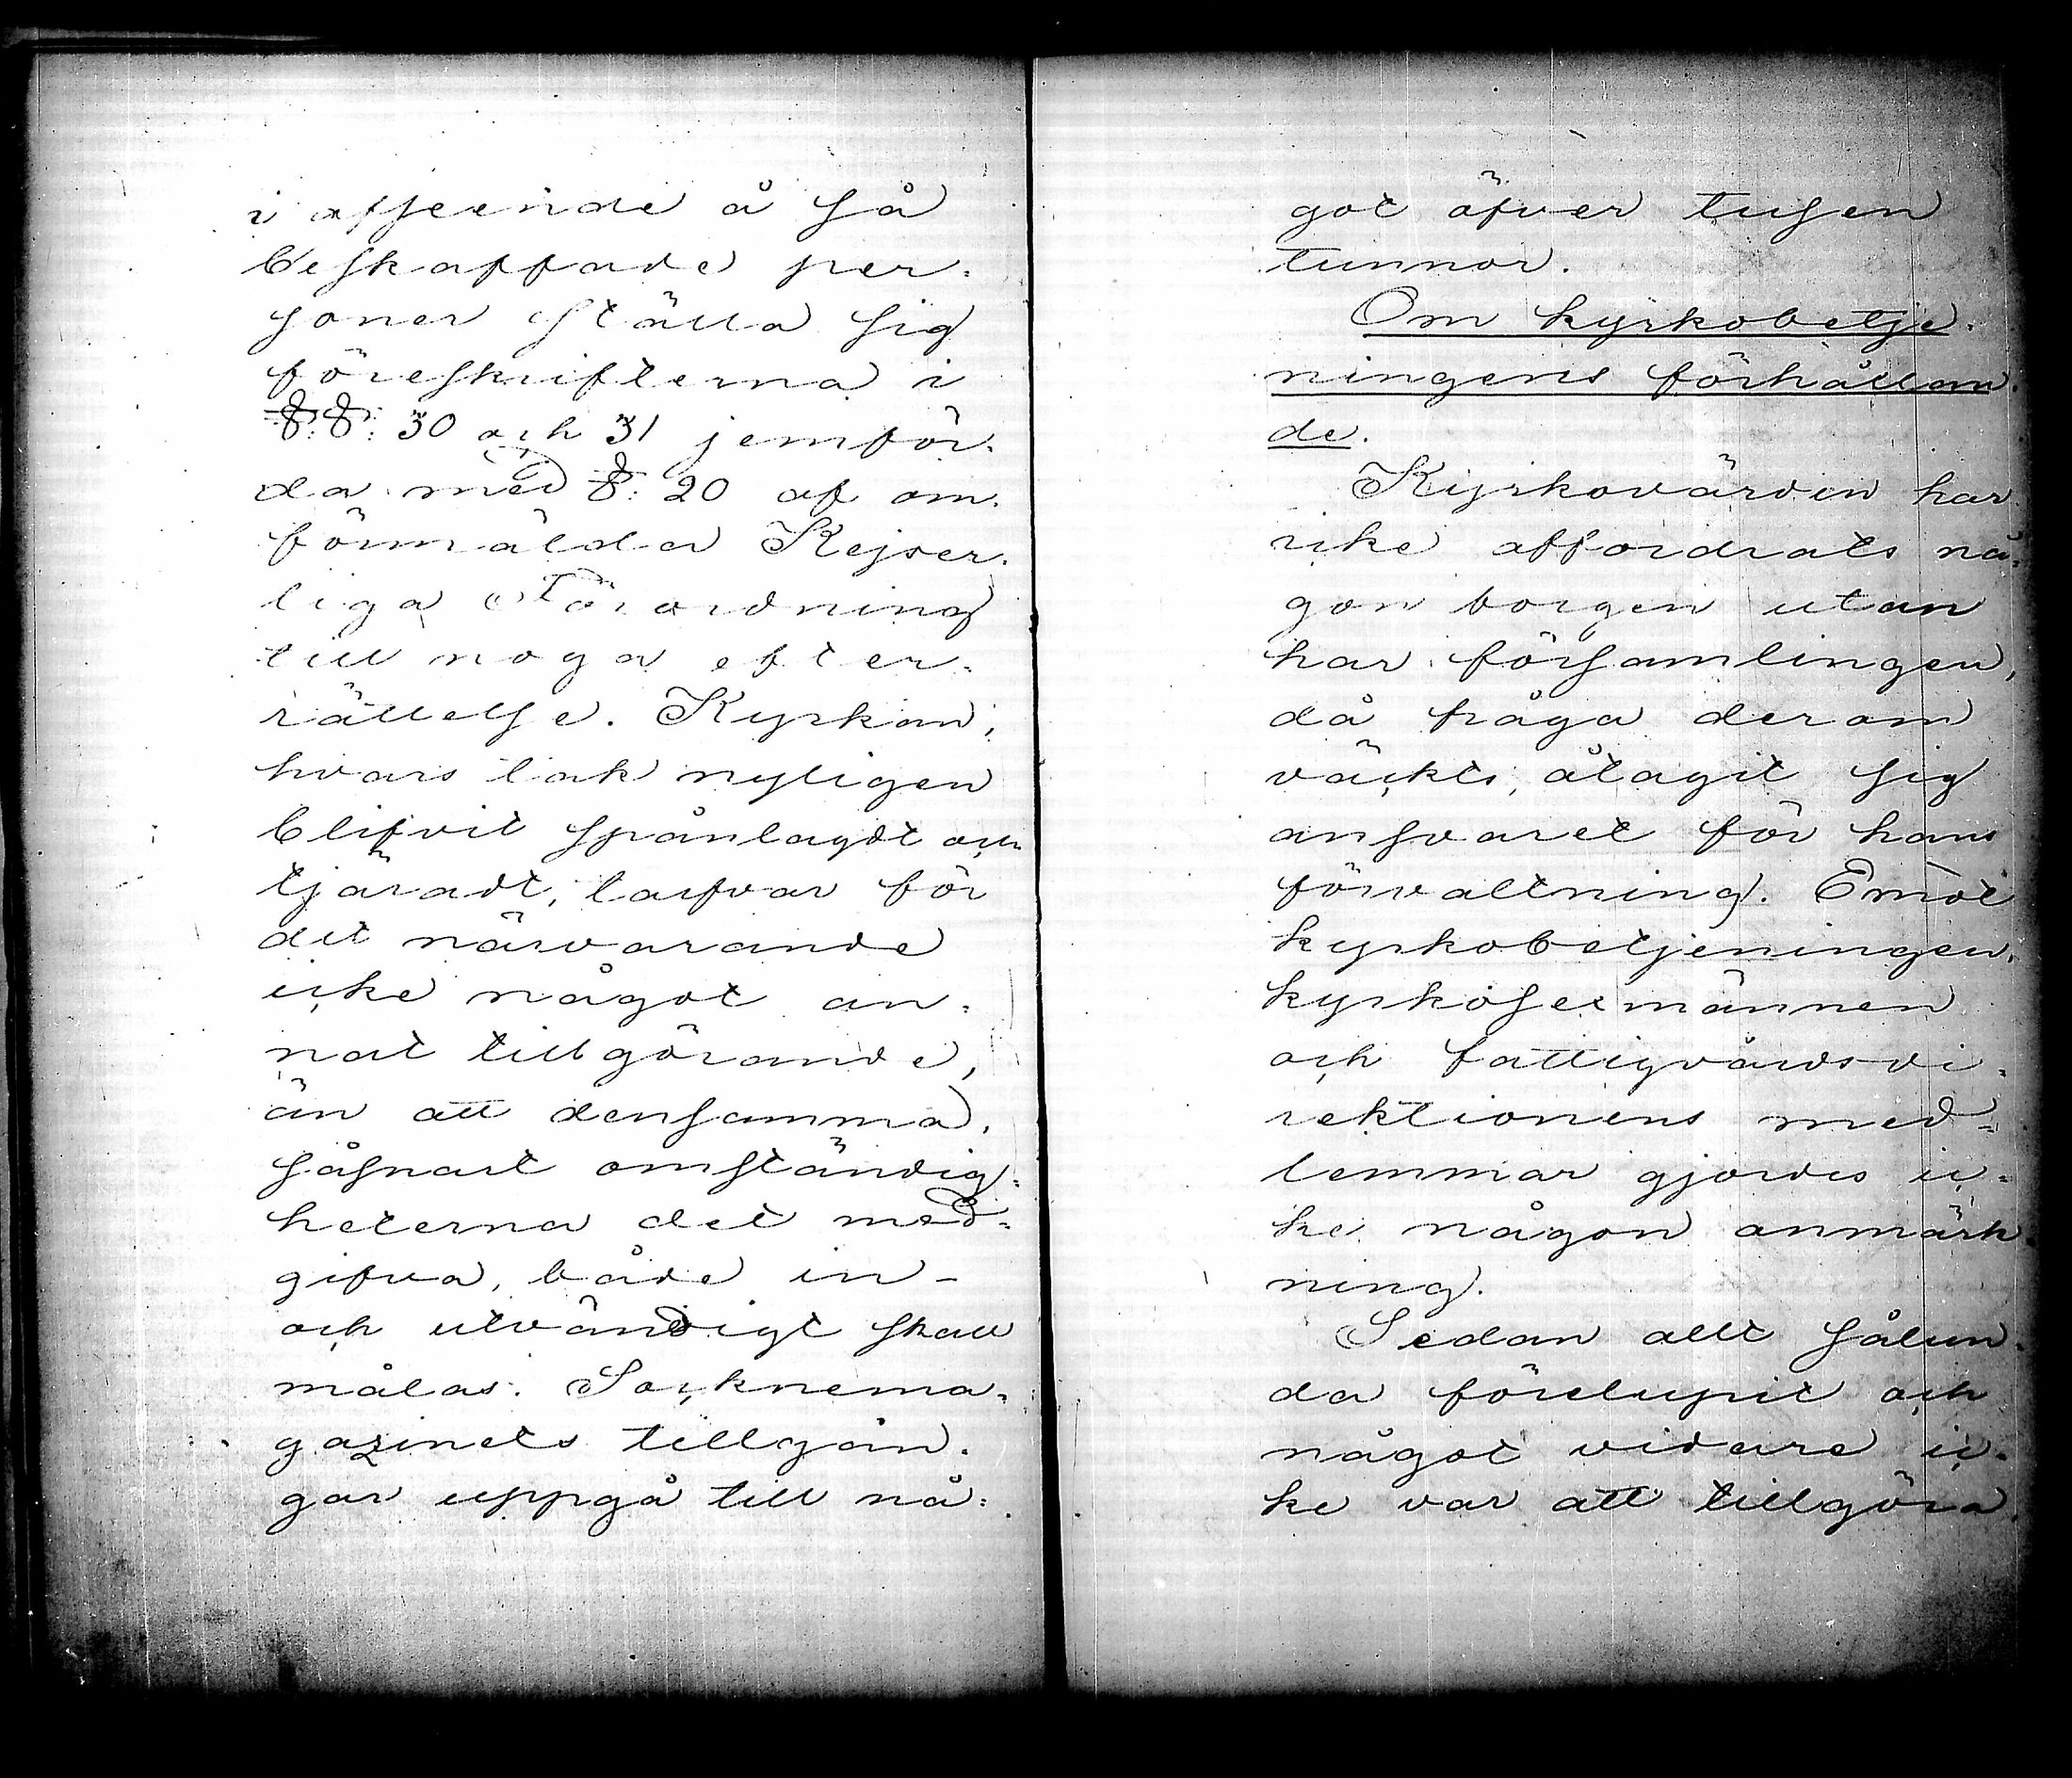 i afseende å så
beskaffade per-
soner ställa sig
föreskrifterna i
§§: 30 och 31 jemför-
da med §: 20 af om-
förmälda Kejser-
liga Förordning
till noga efter-
rättelse. Kyrkan,
hvars tak nyligen
blifvit spånlagdt och
tjäradt, tarfvar för
det närvarande
icke något an-
nat tillgörande,
än att densamma,
såsnart omständig-
heterna det med-
gifva, både in-
och utvändigt skall
målas. Socknema-
gazinets tillgån-
gar uppgå till nå-
got öfver tusen
tunnor.
Om kyrkobetje-
ningens förhållan-
de.
Kyrkovärden har
icke affordrats nå-
gon borgen utan
har församlingen,
då fråga derom
väckts, åtagit sig
ansvaret för hans
förvaltning. Emot
kyrkobetjeningen,
kyrkosexmännen
och fattigvårdsdi-
rektionens med-
lemmar gjordes ic-
ke någon anmärk-
ning.
Sedan allt sålun-
da förelupit och
något vidare ic-
ke var att tillgöra,